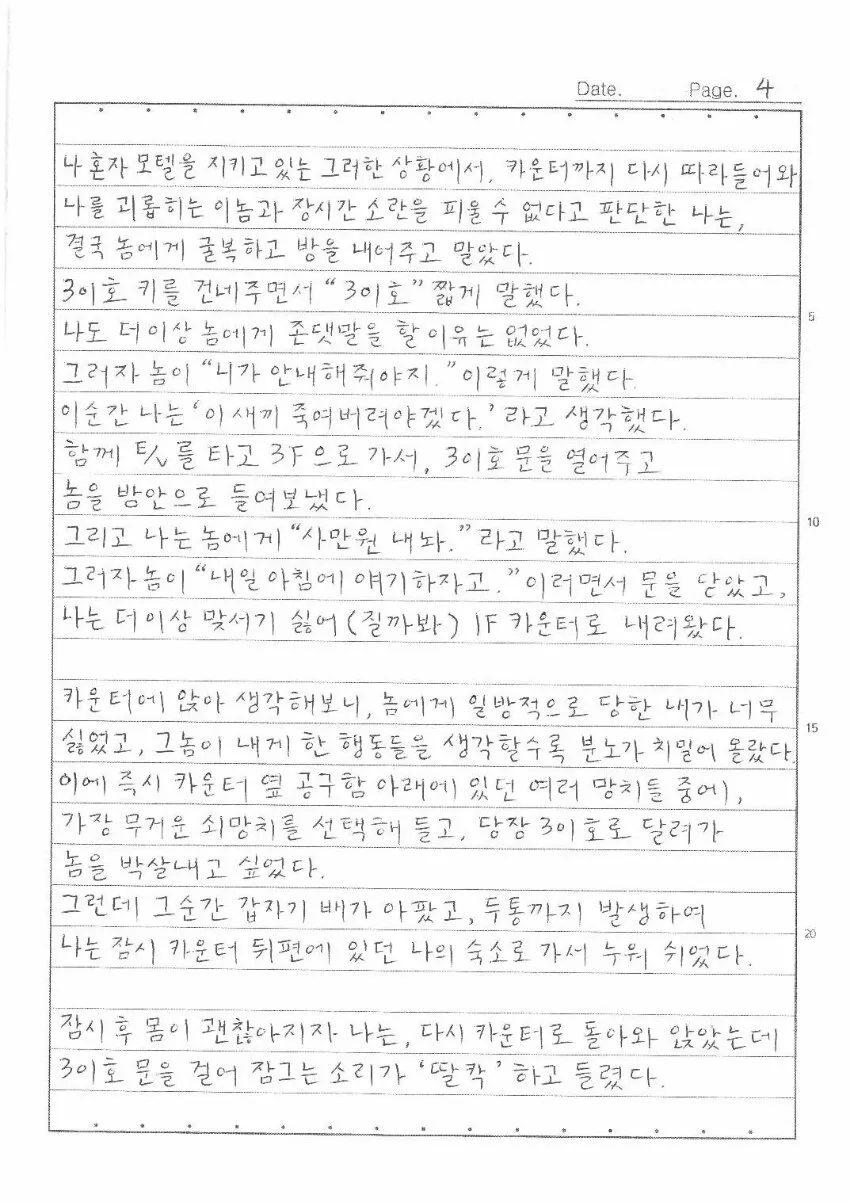 Date. Page. 4
나 혼자 모텔을 지키고 있는 그러한 상황에서, 카운터까지 다시 따라들어와
나를 괴롭히는 이놈과 장시간 소란을 피울 수 없다고 판단한 나는,
결국 놈에게 굴복하고 방을 내어주고 말았다.
301호 키를 건네주면서 “301호” 짧게 말했다.
5
나도 더이상 놈에게 존댓말을 할 이유는 없었다.
그러자 놈이 “니가 안내해줘야지.” 이렇게 말했다.
이순간 나는 ‘이 새끼 죽여버려야겠다.’ 라고 생각했다.
함께 E/V를 타고 3F으로 가서, 301호 문을 열어주고
놈을 방안으로 들여보냈다.
10
그리고 나는 놈에게 “사만원 내놔.” 라고 말했다.
그러자 놈이 “내일 아침에 얘기하자고.” 이러면서 문을 닫았고,
나는 더이상 맞서기 싫어 (질까봐) 1F 카운터로 내려왔다.
카운터에 앉아 생각해보니, 놈에게 일방적으로 당한 내가 너무
15
싫었고, 그놈이 내게 한 행동들을 생각할수록 분노가 치밀어 올랐다
이에 즉시 카운터 옆 공구함 아래에 있던 여러 망치들 중에,
가장 무거운 쇠망치를 선택해 들고, 당장 301호로 달려가
놈을 박살내고 싶었다.
그런데 그순간 갑자기 배가 아팠고, 두통까지 발생하여
20
나는 잠시 카운터 뒤편에 있던 나의 숙소로 가서 누워 쉬었다.
잠시 후 몸이 괜찮아지자 나는, 다시 카운터로 돌아와 앉았는데
301호 문을 걸어 잠그는 소리가 ‘딸칵’ 하고 들렸다.